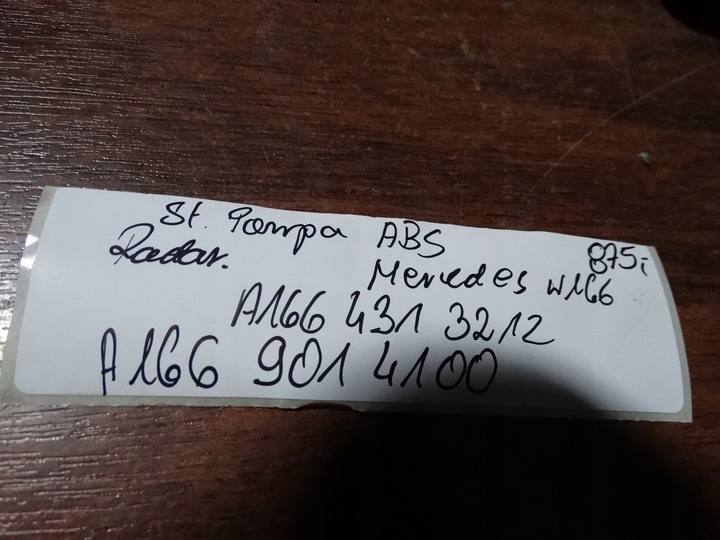 St. Pompa ABS 875,-
Radar. Mercedes W166
A166 431 3212
A166 901 4100